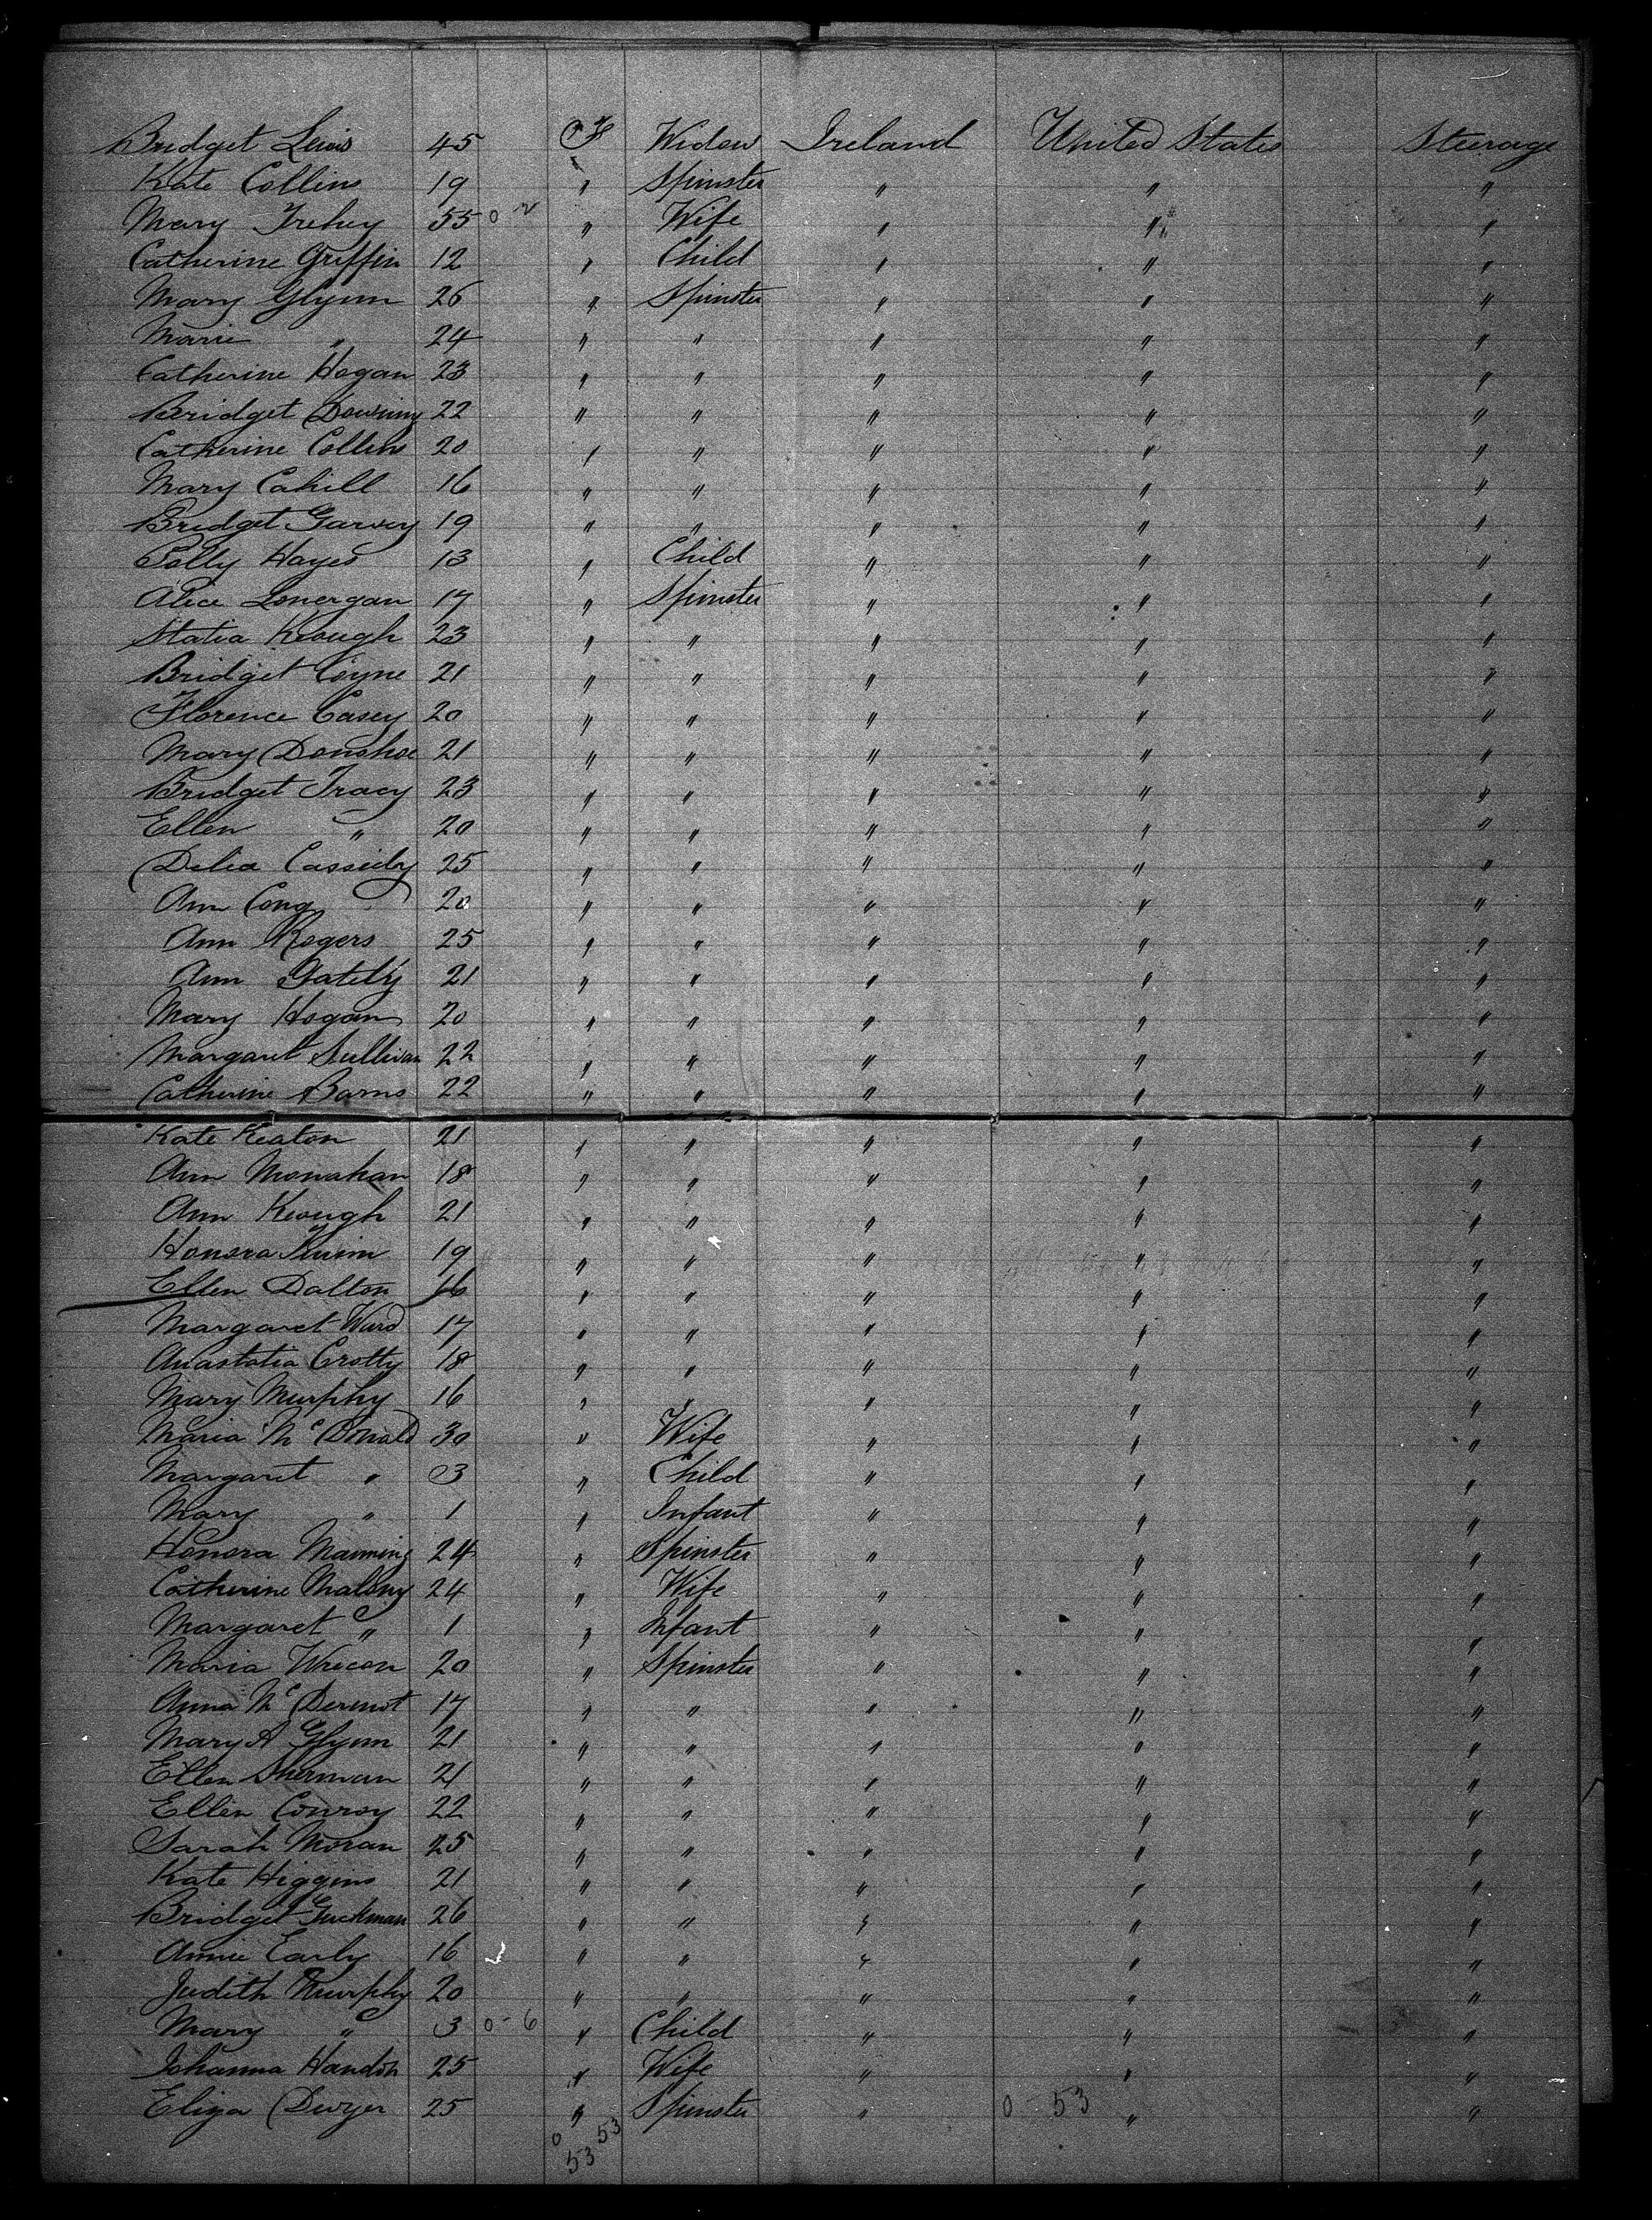 Bridget Lewis 45 F Widow Ireland United States Steerage
Kate Collins 19 " Spinster " " "
Mary Trehey 55 0 " Wife " " "
Catherine Griffin 12 " Child " " "
Mary Glynn 26 " Spinster " " "
Marie " 24 " " " " "
Catherine Hogan 23 " " " " "
Bridget 22 " " " " "
Catherine Collins 20 " " " " "
Mary Cahill 16 " " " " "
Bridget Garvey 19 " " " " "
Polly Hayes 13 " Child " " "
Alice Lonergan 17 " Spinster " " "
Statia Keough 23 " " " " "
Bridget Coyne 21 " " " " "
Florence Casey 20 " " " " "
Mary Donohoe 21 " " " " "
Bridget Tracy 23 " " " " "
Ellen " 20 " " " " "
Delia Cassidy 25 " " " " "
Ann Cong 20 " " " " "
Ann Rogers 25 " " " " "
Ann Gately 21 " " " " "
Mary Hogan 20 " " " " "
Margaret Sullivan 22 " " " " "
Catherine Barns 22 " " " " "
Kate Keaton 21 " " " " "
Ann Monahan 18 " " " " "
Ann Keough 21 " " " " "
Honora 19 " " " " "
Ellen Dalton 16 " " " " "
Margaret Ward 17 " " " " "
Anastatia Crotty 18 " " " " "
Mary Murphy 16 " " " " "
Maria McDonald 30 " Wife " " "
Margaret " 3 " Child " " "
Mary " 1 " Infant " " "
Honora Manning 24 " Spinster " " "
Catherine Malony 24 " Wife " " "
Margaret " 1 " Infant " " "
Maria 20 " Spinster " " "
Anna McDermot 17 " " " " "
Mary A Glynn 21 " " " " "
Ellen Sherman 21 " " " " "
Ellen Conroy 22 " " " " "
Sarah Moran 25 " " " " "
Kate Higgins 21 " " " " "
Bridget 26 " " " " "
Annie Early 16 " " " " "
Judith Murphy 20 " " " " "
Mary " 3 0-6 " Child " " "
Johanna 25 " Wife " " "
Eliza Dwyer 25 " Spinster " 0-53 " "
0 53
53